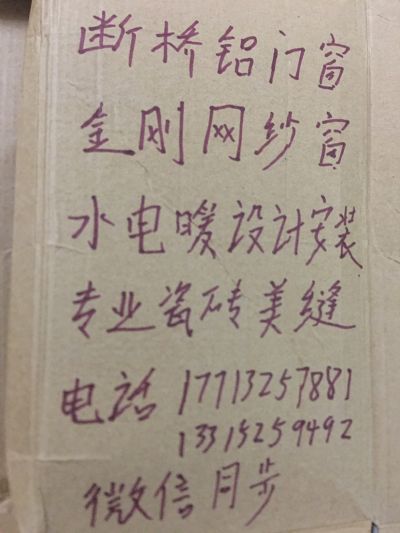 断桥铝门窗
金刚网纱窗
水电暖设计安装
专业瓷砖美缝
电话 17713257881
13315259492
微信同步